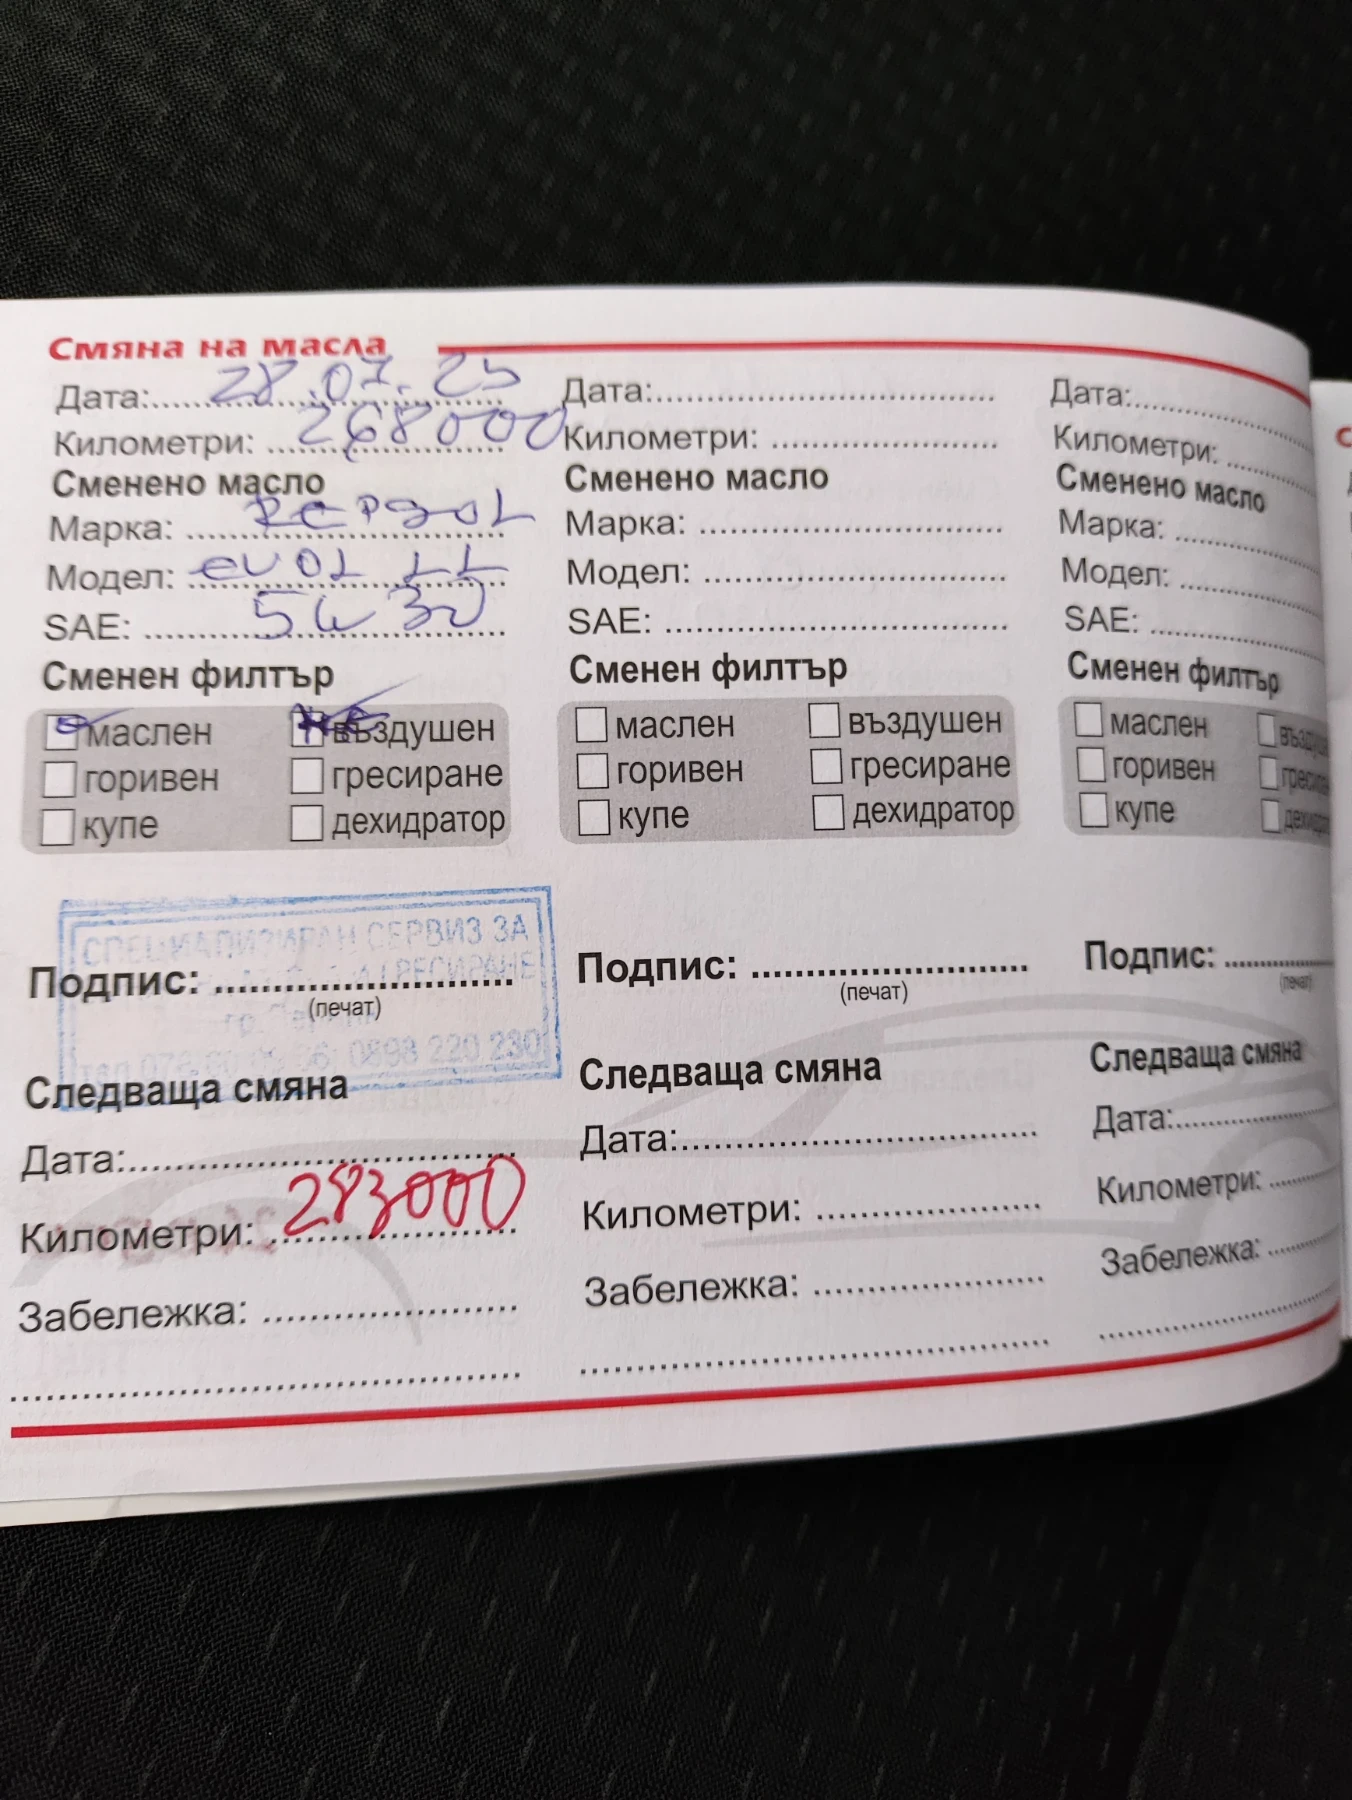 Смяна на масла
Дата: 28.07.25
Километри: 268000
Сменено масло
Марка: Repsol
Модел: evol LL
SAE: 5w30
Сменен филтър
маслен въздушен
горивен гресиране
купе дехидратор
СПЕЦИАЛИЗИРАН СЕРВИЗ ЗА
ГРЕСИРАНЕ
Подпис:
(печат)
гр.
0898 220 230
Следваща смяна
Дата:
Километри: 283000
Забележка:
Дата:
Километри:
Сменено масло
Марка:
Модел:
SAE:
Сменен филтър
маслен въздушен
горивен гресиране
купе дехидратор
Подпис:
(печат)
Следваща смяна
Дата:
Километри:
Забележка:
Дата:
Километри:
Сменено масло
Марка:
Модел:
SAE:
Сменен филтър
маслен
горивен
купе
Подпис:
(печат)
Следваща смяна
Дата:
Километри:
Забележка: